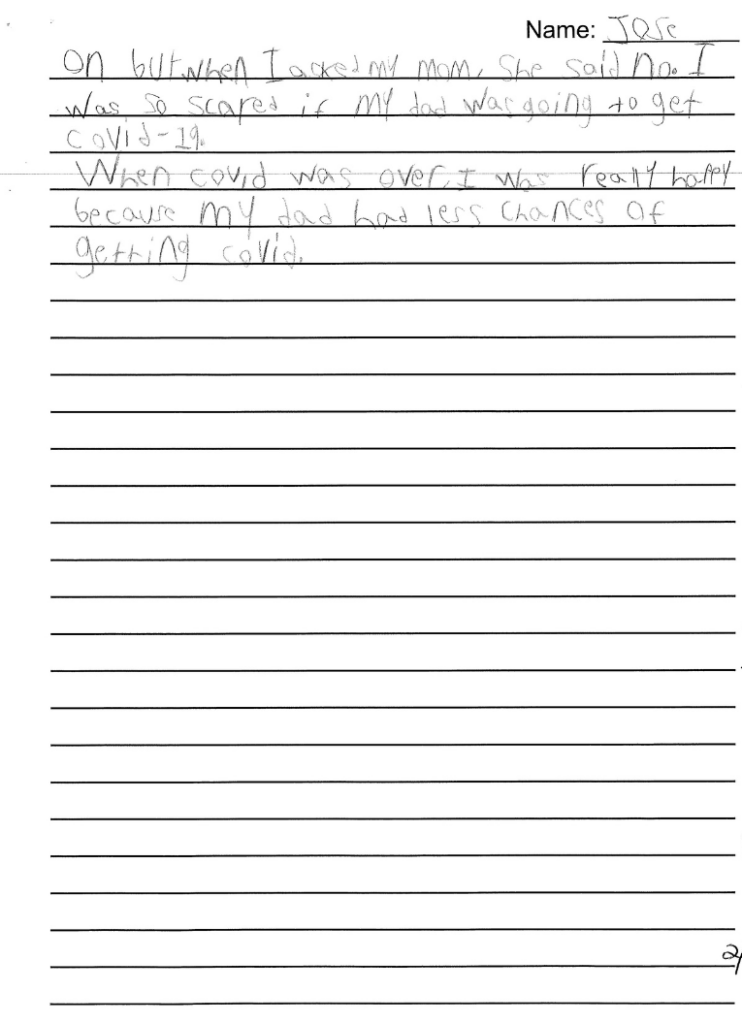 Name: Jose
on but when I acked my mom, She said no. I
was so scared if my dad was going to get
covid-19.
When covid was over, I was really happy
because my dad had less chances of
getting covid.